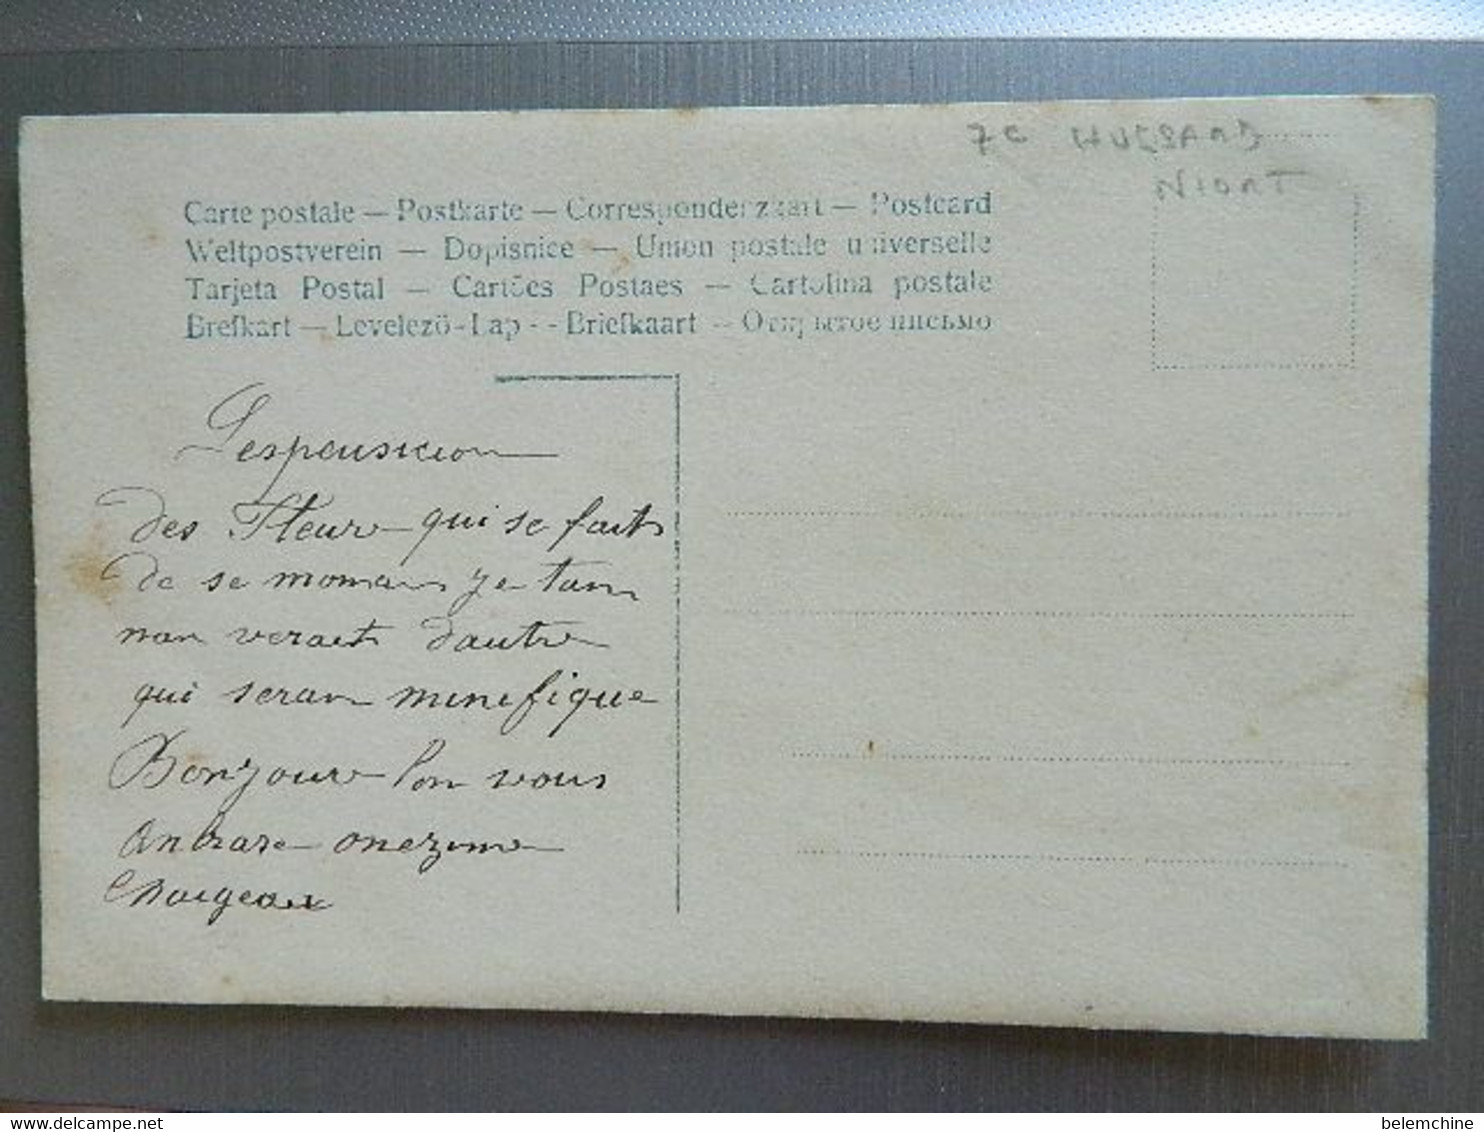 7e HUSSARD
NIORT
Carte postale — Postkarte — Correspondenzkart — Postcard
Weltpostverein — Dopisnice — Union postale universelle
Tarjeta Postal — Cartões Postaes — Cartolina postale
Brefkart — Levelezö-Lap -- Briefkaart — Открытое письмо
Lespousicion
des Fleur qui se fait
de se moman je tan
nan verait dautre
qui seran minifique
Bonjour lon vous
anbrase onezime
Chaigeau
belemchine